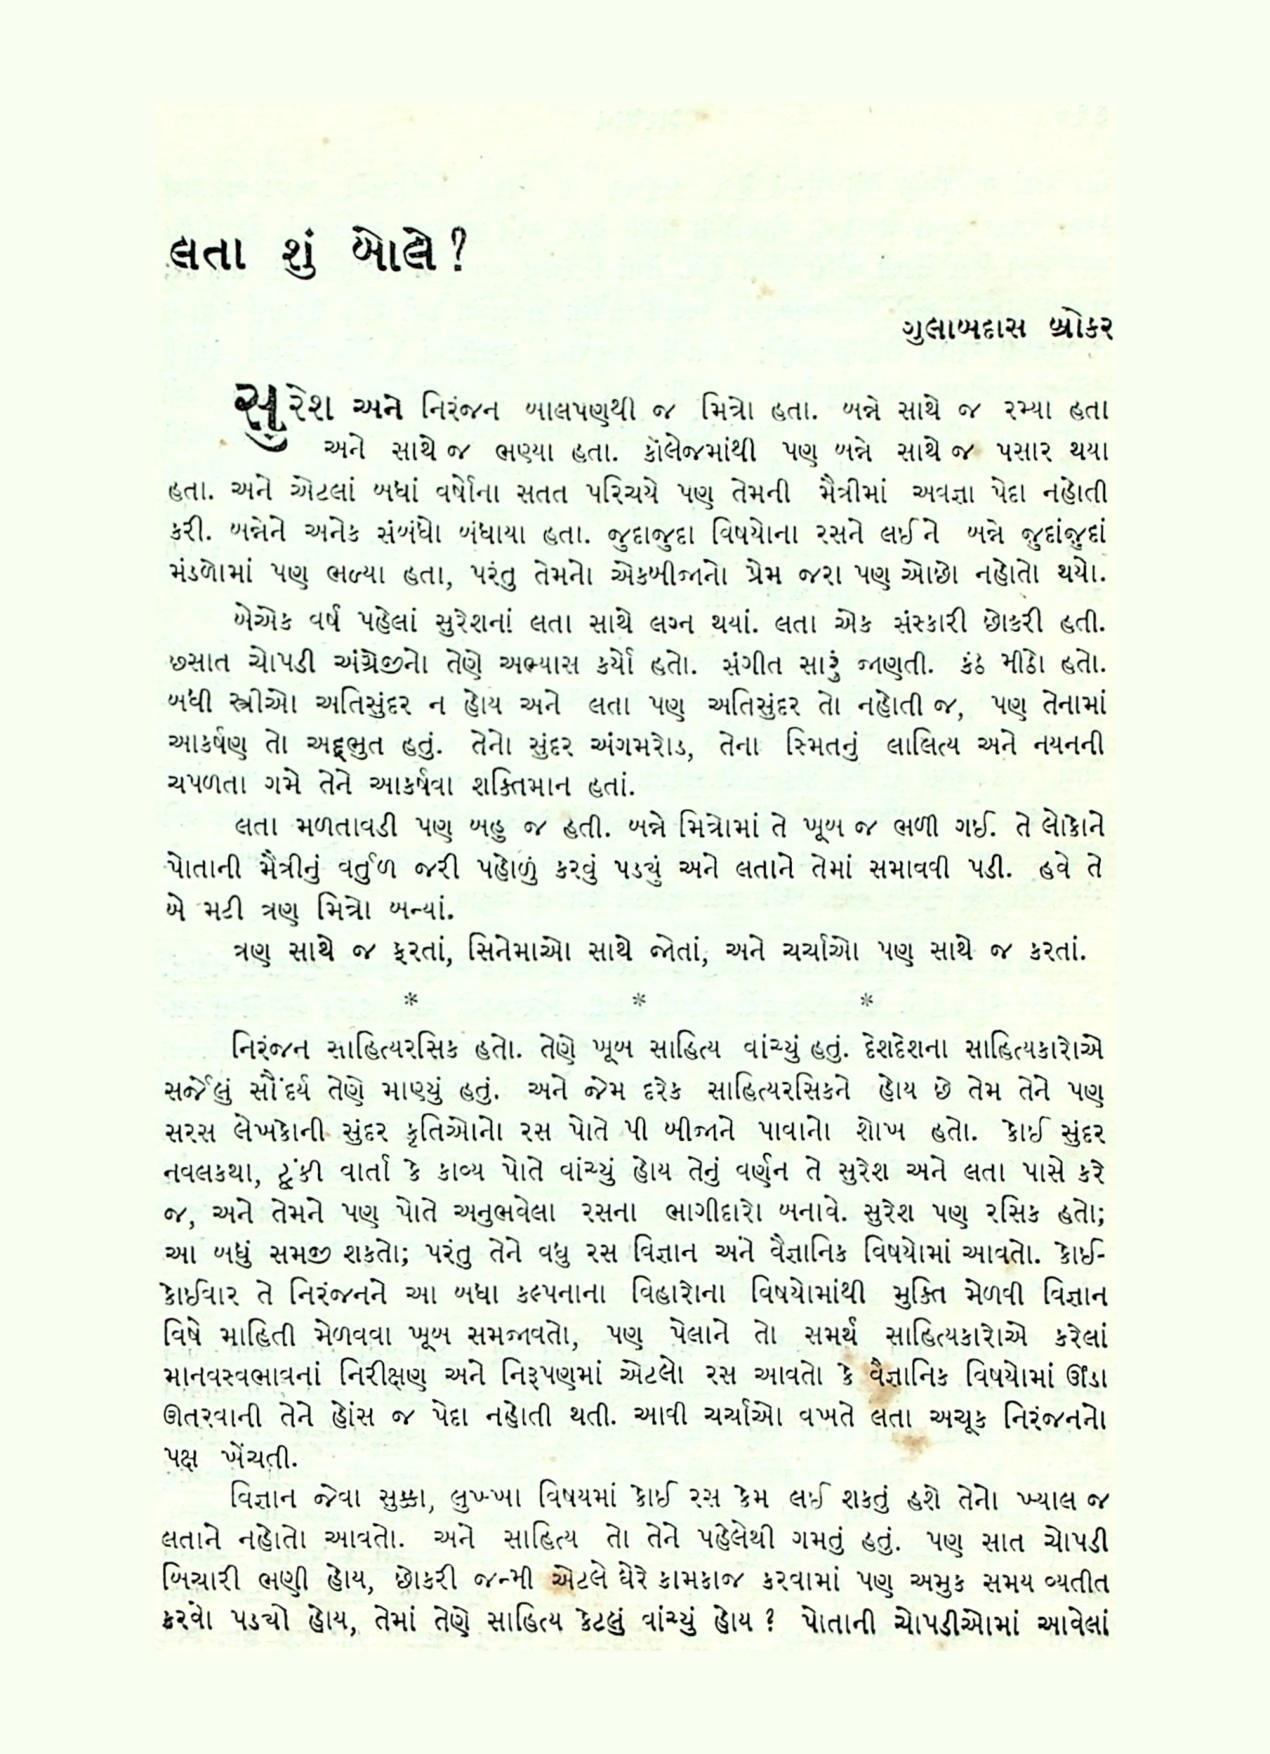 લતા શું બોલે?
ગુલાબદાસ બ્રોકર
સુરેશ અને નિરંજન બાલપણથી જ મિત્રો હતા. બન્ને સાથે જ રમ્યા હતા
અને સાથે જ ભણ્યા હતા. કૉલેજમાંથી પણ બન્ને સાથે જ પસાર થયા
હતા. અને એટલાં બધાં વર્ષોના સતત પરિચયે પણ તેમની મૈત્રીમાં અવજ્ઞા પેદા નહોતી
કરી. બન્નેને અનેક સંબંધો બંધાયા હતા. જુદાજુદા વિષયોના રસને લઈને બન્ને જુદાંજુદાં
મંડળોમાં પણ ભળ્યા હતા, પરંતુ તેમનો એકબીજાનો પ્રેમ જરા પણ ઓછો નહોતો થયો.
બેએક વર્ષ પહેલાં સુરેશનાં લતા સાથે લગ્ન થયાં. લતા એક સંસ્કારી છોકરી હતી.
છસાત ચોપડી અંગ્રેજીનો તેણે અભ્યાસ કર્યો હતો. સંગીત સારું જાણતી. કંઠ મીઠો હતો.
બધી સ્ત્રીઓ અતિસુંદર ન હોય અને લતા પણ અતિસુંદર તો નહોતી જ, પણ તેનામાં
આકર્ષણ તો અદ્ભુત હતું. તેનો સુંદર અંગમરોડ, તેના સ્મિતનું લાલિત્ય અને નયનની
ચપળતા ગમે તેને આકર્ષવા શક્તિમાન હતાં.
લતા મળતાવડી પણ બહુ જ હતી. બન્ને મિત્રોમાં તે ખૂબ જ ભળી ગઈ. તે લોકોને
પોતાની મૈત્રીનું વર્તુળ જરી પહોળું કરવું પડ્યું અને લતાને તેમાં સમાવવી પડી. હવે તે
બે મટી ત્રણ મિત્રો બન્યાં.
ત્રણ સાથે જ ફરતાં, સિનેમાઓ સાથે જોતાં, અને ચર્ચાઓ પણ સાથે જ કરતાં.
* * *
નિરંજન સાહિત્યરસિક હતો. તેણે ખૂબ સાહિત્ય વાંચ્યું હતું. દેશદેશના સાહિત્યકારોએ
સર્જેલું સૌંદર્ય તેણે માણ્યું હતું. અને જેમ દરેક સાહિત્યરસિકને હોય છે તેમ તેને પણ
સરસ લેખકોની સુંદર કૃતિઓનો રસ પોતે પી બીજાને પાવાનો શોખ હતો. કોઈ સુંદર
નવલકથા, ટૂંકી વાર્તા કે કાવ્ય પોતે વાંચ્યું હોય તેનું વર્ણન તે સુરેશ અને લતા પાસે કરે
જ, અને તેમને પણ પોતે અનુભવેલા રસના ભાગીદારો બનાવે. સુરેશ પણ રસિક હતો;
આ બધું સમજી શકતો; પરંતુ તેને વધુ રસ વિજ્ઞાન અને વૈજ્ઞાનિક વિષયોમાં આવતો. કોઈ-
કોઈવાર તે નિરંજનને આ બધા કલ્પનાના વિહારોના વિષયોમાંથી મુક્તિ મેળવી વિજ્ઞાન
વિષે માહિતી મેળવવા ખૂબ સમજાવતો, પણ પેલાને તો સમર્થ સાહિત્યકારોએ કરેલાં
માનવસ્વભાવનાં નિરીક્ષણ અને નિરૂપણમાં એટલો રસ આવતો કે વૈજ્ઞાનિક વિષયોમાં ઊંડા
ઊતરવાની તેને હોંસ જ પેદા નહોતી થતી. આવી ચર્ચાઓ વખતે લતા અચૂક નિરંજનનો
પક્ષ ખેંચતી.
વિજ્ઞાન જેવા સુક્કા, લુખ્ખા વિષયમાં કોઈ રસ કેમ લઈ શકતું હશે તેનો ખ્યાલ જ
લતાને નહોતો આવતો. અને સાહિત્ય તો તેને પહેલેથી ગમતું હતું. પણ સાત ચોપડી
બિચારી ભણી હોય, છોકરી જન્મી એટલે ઘેરે કામકાજ કરવામાં પણ અમુક સમય વ્યતીત
કરવો પડ્યો હોય, તેમાં તેણે સાહિત્ય કેટલું વાંચ્યું હોય ? પોતાની ચોપડીઓમાં આવેલાં